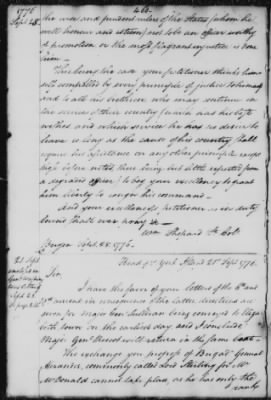 1776
466.
Sept. 28.
the wise and prudent rulers of the States (whom he
with honour and esteem) not to be an officer worthy
of promotion or the most flagrant injustice is done
him
This being the case your petitioner thinks him
self compelled by every principle of justice to humanity
and to all his brethren who may continue in
the service of their country (which was his best
wishes and which service he has no desire to
leave so long as the cause of his country shall
require his assistance on any other principle except
before noted there being but little expected from
a degraded officer) to beg your excellency to grant
him liberty to resign his command.
And your excellency's petitioner as in duty
bound shall ever pray &c
Wm. Shepard Lt. Col.
Bergen Sept. 28. 1776.
Head Qrs. York Island 25 Sept. 1776.
Sir,
I have the favor of your letters of the 6th and
instant in consequence of the latter directions are
given for Major Genl Sullivan being conveyed to Eliza
beth town on the earliest day and I conclude
Major Genl Prescott will return in the same boat.
The exchange you propose of Brigadr General
Alexander, commonly called Lord Stirling for Mr
McDonald cannot take place, as he has only the
rank